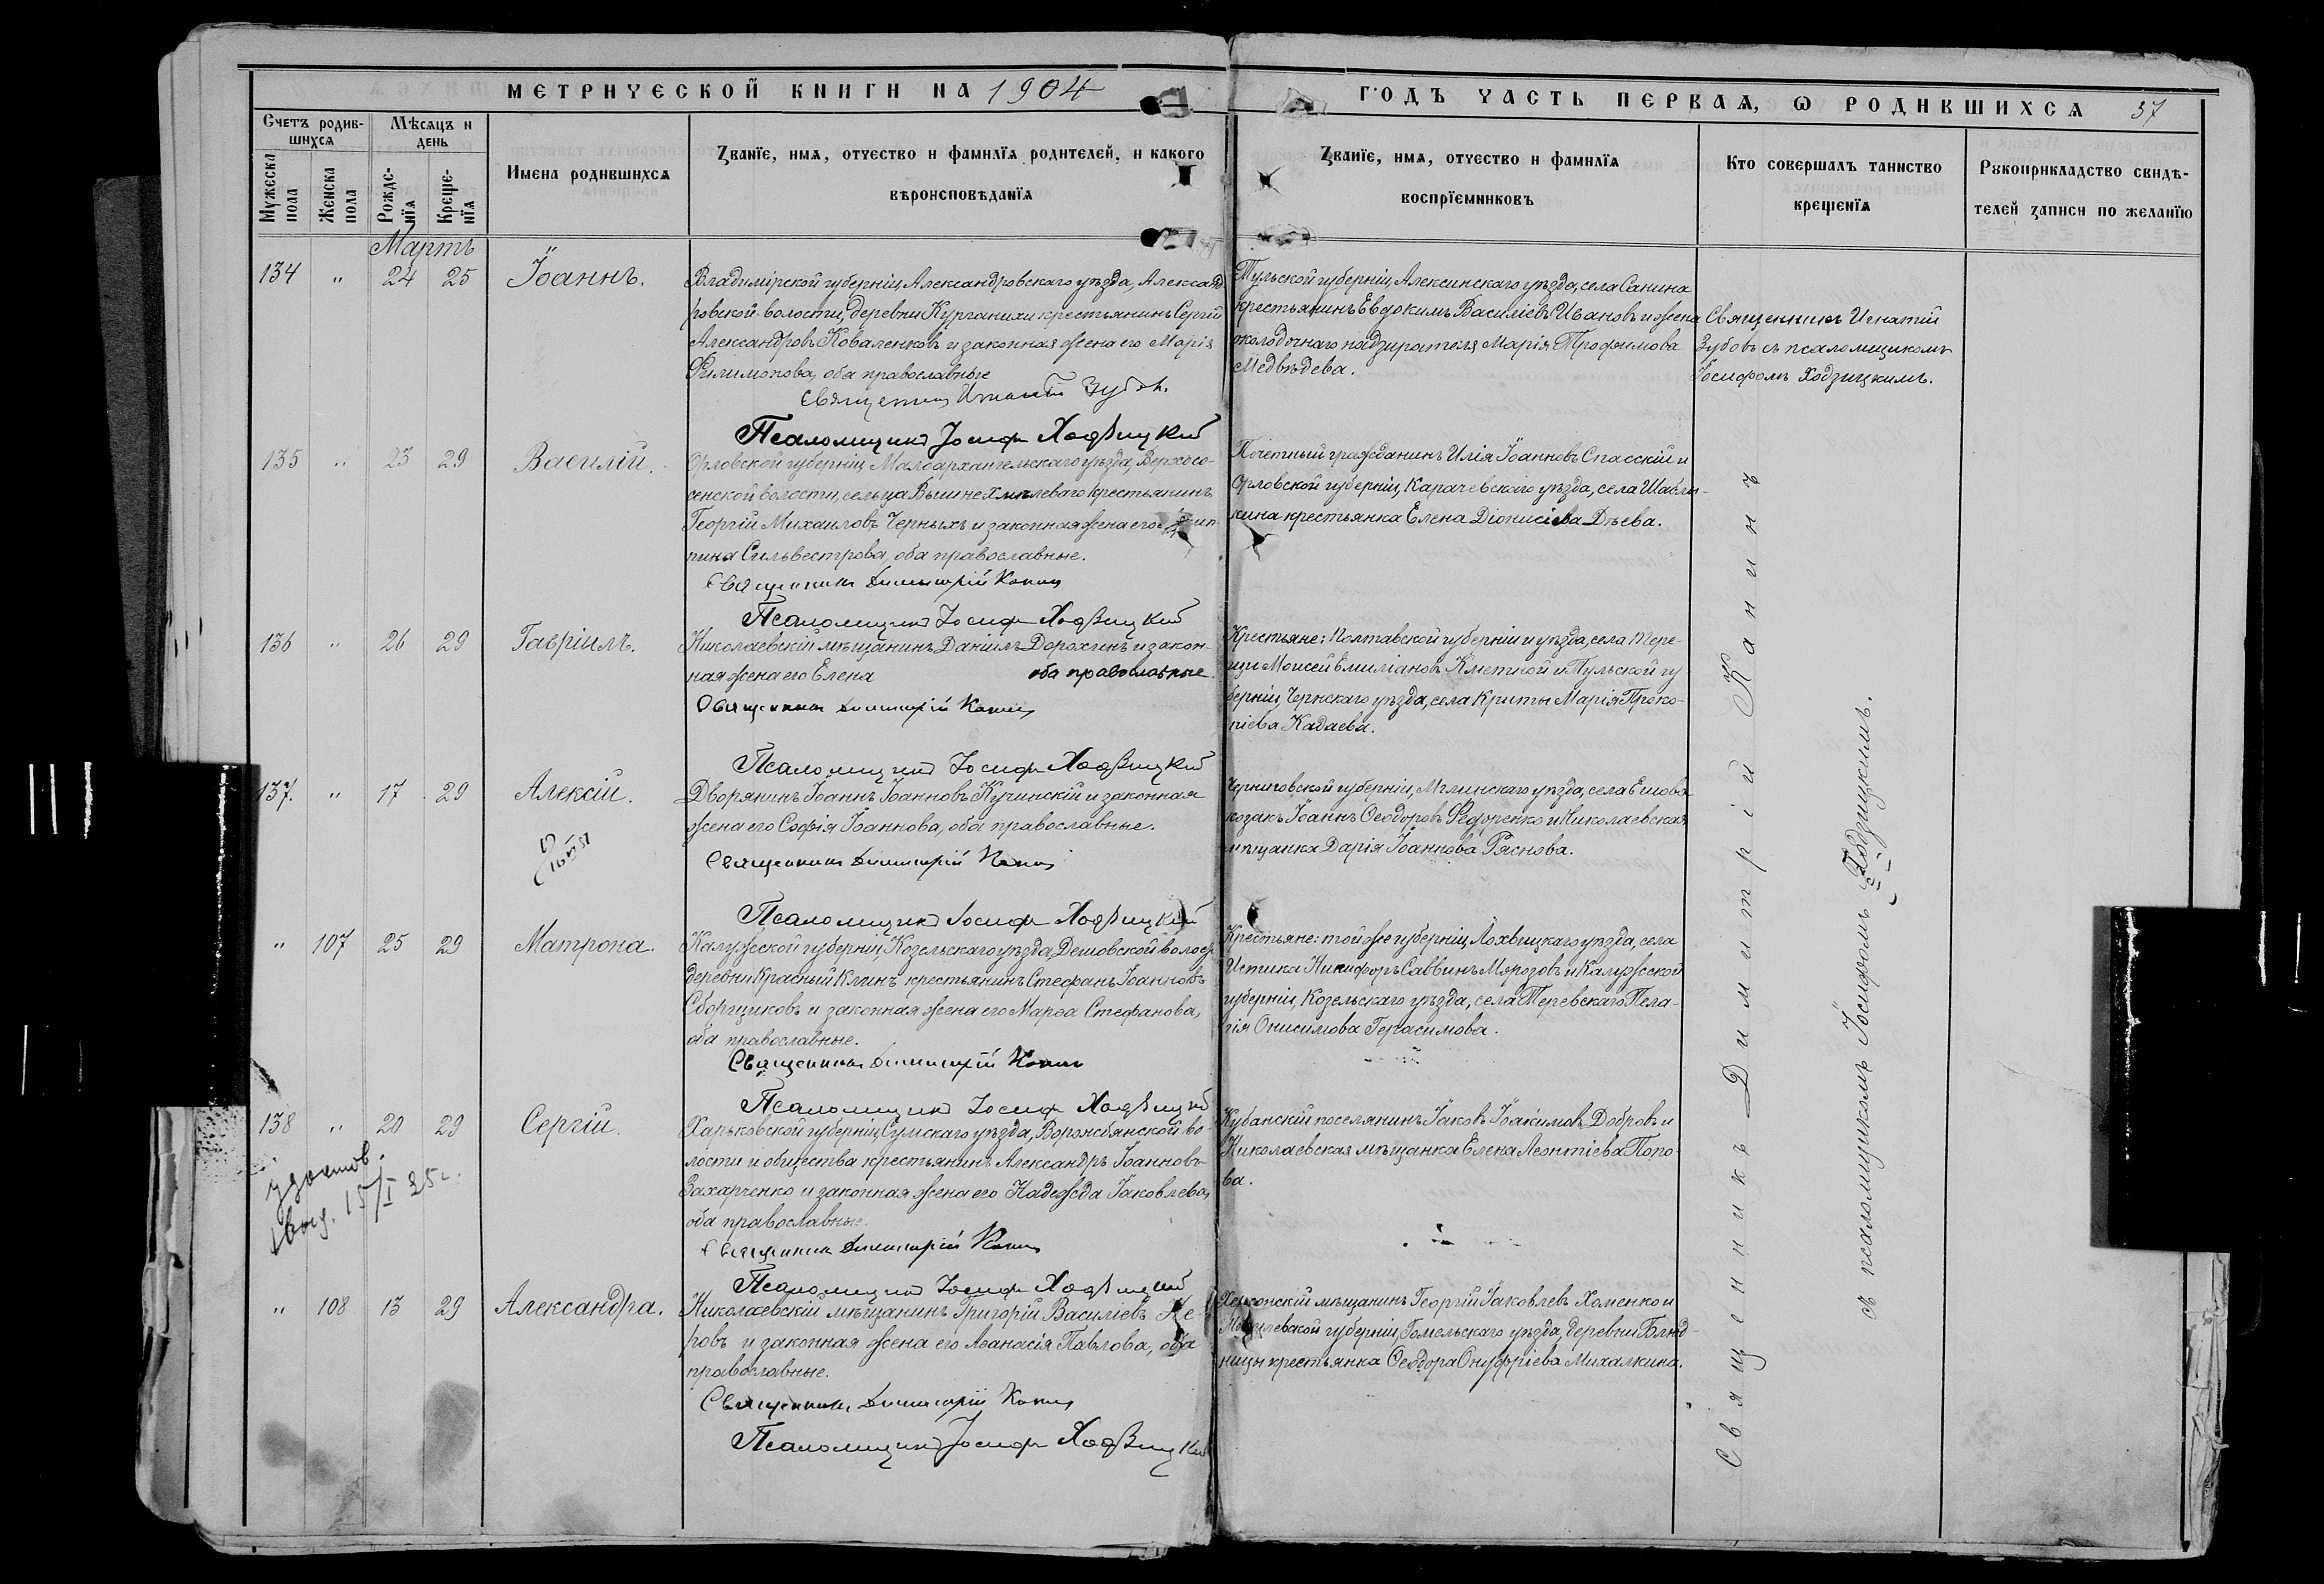 МЕТРИЧЕСКОЙ КНИГИ НА 1904
ГОДЪ ЧАСТЬ ПЕРВАѦ, Ѡ РОДИВШИХСѦ 37
Счетъ родив-
шихся
Мѣсяцъ и
день
Мужеска
пола
Женска
пола
Рожде-
нїя
Креще-
нїя
Имена родившихсѧ
Званїе, имѧ, отчество и фамилїѧ родителей, и какого
вѣроисповѣданїѧ
Званїе, имѧ, отчество и фамилїѧ
воспрїемниковъ
Кто совершалъ таинство
крещенїѧ
Рукоприкладство свидѣ-
телей записи по желанїю
Мартъ
134 " 24 25 Іоаннъ.
Владимірской губерніи, Александровскаго уѣзда, Александ
ровской волости, деревни Курганихи крестьянинъ Сергій
Александровъ Коваленковъ и законная жена его Марія
Филимонова, оба православные
Священникъ Игнатій Зубовъ.
Псаломщикъ Іосифъ Ходзицкій
Тульской губерніи, Алексинскаго уѣзда, села Санина
крестьянинъ Евдокимъ Василіевъ Ивановъ и жена
околодочнаго надзирателя Марія Трофимова
Медвѣдева.
Священникъ Игнатій
Зубовъ съ псаломщикомъ
Іосифомъ Ходзицкимъ.
135 " 23 29 Василій.
Орловской губерніи, Малоархангельскаго уѣзда, Верхосо-
сенской волости, сельца Вышнехмѣлеваго крестьянинъ
Георгій Михаиловъ Черныхъ и законная жена его
пина Сильвестрова, оба православные.
Священникъ Димитрій Канинъ
Псаломщикъ Іосифъ Ходзицкій
Почетный гражданинъ Илія Іоанновъ Спасскій и
Орловской губерніи, Карачевскаго уѣзда, села Шабли-
кина крестьянка Елена Діонисіева Дѣева.
136 " 26 29 Гавріилъ.
Николаевскій мѣщанинъ Даніилъ Дорохинъ и закон-
ная жена его Елена оба православные.
Священникъ Димитрій Канинъ
Псаломщикъ Іосифъ Ходзицкій
Крестьяне: Полтавской губерніи и уѣзда, села Тере-
шки Моисей Емиліановъ Кметной и Тульской гу
берніи, Чернскаго уѣзда, села Криты Марія Проко-
піева Кадаева.
137. " 17 29 Алексій.
Дворянинъ Іоаннъ Іоанновъ Кучинскій и законная
жена его Софія Іоаннова, оба православные.
Священникъ Димитрій Канинъ
Псаломщикъ Іосифъ Ходзицкій
Черниговской губерніи, Мглинскаго уѣзда, села
козакъ Іоаннъ Ѳеодоровъ Федоренко и Николаевская
мѣщанка Дарія Іоаннова Ряснова.
" 107 25 29 Матрона.
Калужской губерніи, Козельскаго уѣзда, Дешовской волости
деревни Красный Клинъ крестьянинъ Стефанъ Іоанновъ
Сборщиковъ и законная жена его Марѳа Стефанова,
оба православные.
Священникъ Димитрій Канинъ
Псаломщикъ Іосифъ Ходзицкій
Крестьяне: той же губерніи, Лохвицкаго уѣзда, села
Истика Никифоръ Саввинъ Морозовъ и Калужской
губерніи, Козельскаго уѣзда, села Теревскаго Пела-
гія Онисимова Герасимова.
138 " 20 29 Сергій.
удостов.
выд. 15/I 25г.
Харьковской губерніи, Сумскаго уѣзда, Ворожбянской во-
лости и общества крестьянинъ Александръ Іоанновъ
Захарченко и законная жена его Надежда Іаковлева,
оба православные.
Священникъ Димитрій Канинъ
Псаломщикъ Іосифъ Ходзицкій
Кубанскій поселянинъ Іаковъ Іоакимовъ Добровъ и
Николаевская мѣщанка Елена Леонтіева Попо-
ва.
" 108 13 29 Александра.
Николаевскій мѣщанинъ Григорій Василіевъ
ровъ и законная жена его Аѳанасія Павлова, оба
православные.
Священникъ Димитрій Канинъ
Псаломщикъ Іосифъ Ходзицкій
Херсонскій мѣщанинъ Георгій Іаковлевъ Хоменко и
Могилевской губерніи, Гомельскаго уѣзда, деревни
ницы крестьянка Ѳеодора Онуфріева Михалкина.
Священникъ Димитрій Канинъ
съ псаломщикомъ Іосифомъ Ходзицкимъ.